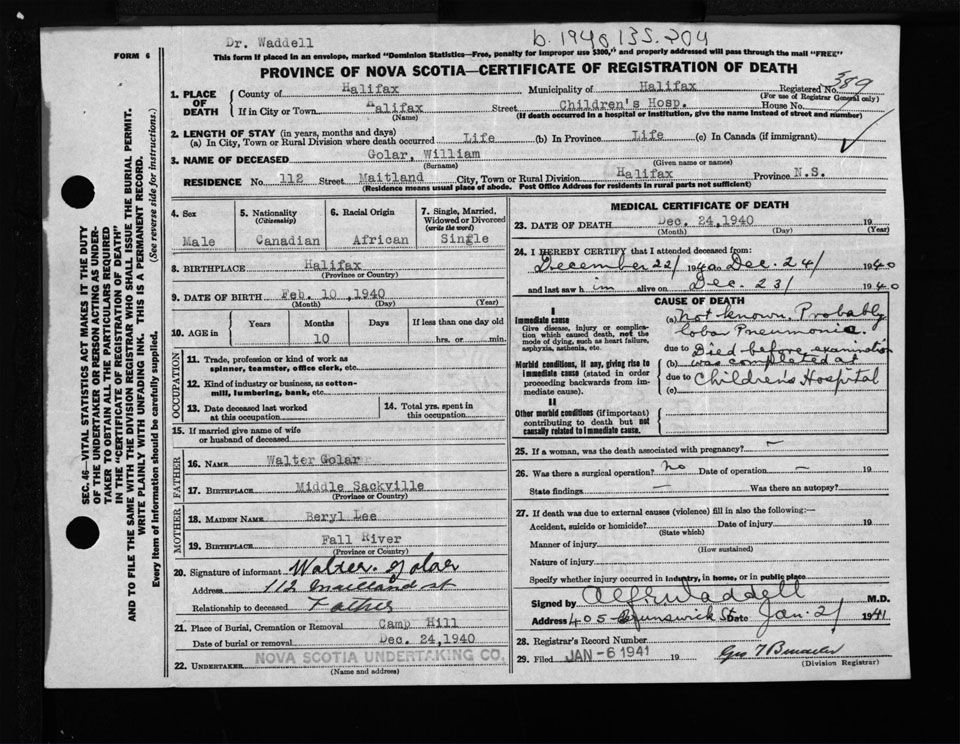 Dr. Waddell
b. 1940 135.204
FORM 6
This form if placed in an envelope, marked "Dominion Statistics—Free, penalty for improper use $300," and properly addressed will pass through the mail "FREE"
PROVINCE OF NOVA SCOTIA—CERTIFICATE OF REGISTRATION OF DEATH
1. PLACE OF DEATH
County of Halifax Municipality of Halifax Registered No. 389
(For use of Registrar General only)
If in City or Town Halifax Street Children's Hosp. House No.
(Name) (If death occurred in a hospital or institution, give the name instead of street and number)
2. LENGTH OF STAY (in years, months and days)
(a) In City, Town or Rural Division where death occurred Life (b) In Province Life (c) In Canada (if immigrant)
3. NAME OF DECEASED Golar, William
(Surname) (Given name or names)
RESIDENCE No. 112 Street Maitland City, Town or Rural Division Halifax Province N.S.
(Residence means usual place of abode. Post Office Address for residents in rural parts not sufficient)
4. Sex Male
5. Nationality (Citizenship) Canadian
6. Racial Origin African
7. Single, Married, Widowed or Divorced (write the word) Single
8. BIRTHPLACE Halifax
(Province or Country)
9. DATE OF BIRTH Feb. 10, 1940
(Month) (Day) (Year)
10. AGE in Years Months Days If less than one day old
10 hrs. or min.
OCCUPATION
11. Trade, profession or kind of work as spinner, teamster, office clerk, etc.
12. Kind of industry or business, as cotton-mill, lumbering, bank, etc.
13. Date deceased last worked at this occupation
14. Total yrs. spent in this occupation
15. If married give name of wife or husband of deceased
FATHER
16. NAME Walter Golar
17. BIRTHPLACE Middle Sackville
(Province or Country)
MOTHER
18. MAIDEN NAME Beryl Lee
19. BIRTHPLACE Fall River
(Province or Country)
20. Signature of informant Walter Golar
Address 112 Maitland st
Relationship to deceased Father
21. Place of Burial, Cremation or Removal Camp Hill
Date of burial or removal Dec. 24, 1940
22. UNDERTAKER NOVA SCOTIA UNDERTAKING CO.
(Name and address)
MEDICAL CERTIFICATE OF DEATH
23. DATE OF DEATH Dec. 24, 1940 19
(Month) (Day) (Year)
24. I HEREBY CERTIFY that I attended deceased from:
December 22/ 1940 Dec. 24/ 1940
and last saw him alive on Dec. 23/ 1940
CAUSE OF DEATH
I
Immediate cause
Give disease, injury or complication which caused death, not the mode of dying, such as heart failure, asphyxia, asthenia, etc.
(a) not known. Probably
lobar Pneumonia.
due to Died before examination
Morbid conditions, if any, giving rise to immediate cause (stated in order proceeding backwards from immediate cause).
(b) was completed at
due to Children's Hospital
(c)
II
Other morbid conditions (if important) contributing to death but not causally related to immediate cause.
25. If a woman, was the death associated with pregnancy? —
26. Was there a surgical operation? no Date of operation — 19
State findings — Was there an autopsy?
27. If death was due to external causes (violence) fill in also the following:—
Accident, suicide or homicide? Date of injury 19
(State which)
Manner of injury
(How sustained)
Nature of injury
Specify whether injury occurred in industry, in home, or in public place
Signed by Alf Waddell M.D.
Address 405 Brunswick St Date Jan. 2/ 1941
28. Registrar's Record Number
29. Filed JAN -6 1941 19
(Division Registrar)
SEC. 46—VITAL STATISTICS ACT MAKES IT THE DUTY
OF THE UNDERTAKER OR PERSON ACTING AS UNDER-
TAKER TO OBTAIN ALL THE PARTICULARS REQUIRED
IN THE "CERTIFICATE OF REGISTRATION OF DEATH"
AND TO FILE THE SAME WITH THE DIVISION REGISTRAR WHO SHALL ISSUE THE BURIAL PERMIT.
WRITE PLAINLY WITH UNFADING INK. THIS IS A PERMANENT RECORD.
Every item of Information should be carefully supplied. (See reverse side for instructions.)